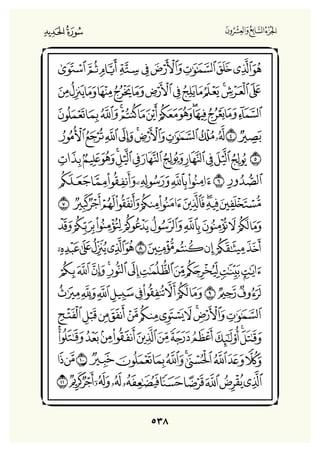 الجُزْءُ السَّابِعُ وَالعِشْرُونَ
سُورَةُ الحَدِيدِ
هُوَ ٱلَّذِى خَلَقَ ٱلسَّمَٰوَٰتِ وَٱلْأَرْضَ فِى سِتَّةِ أَيَّامٍ ثُمَّ ٱسْتَوَىٰ
عَلَى ٱلْعَرْشِ ۚ يَعْلَمُ مَا يَلِجُ فِى ٱلْأَرْضِ وَمَا يَخْرُجُ مِنْهَا وَمَا يَنزِلُ مِنَ
ٱلسَّمَآءِ وَمَا يَعْرُجُ فِيهَا ۖ وَهُوَ مَعَكُمْ أَيْنَ مَا كُنتُمْ ۚ وَٱللَّهُ بِمَا تَعْمَلُونَ
بَصِيرٌ ٤ لَّهُۥ مُلْكُ ٱلسَّمَٰوَٰتِ وَٱلْأَرْضِ ۚ وَإِلَى ٱللَّهِ تُرْجَعُ ٱلْأُمُورُ
٥ يُولِجُ ٱلَّيْلَ فِى ٱلنَّهَارِ وَيُولِجُ ٱلنَّهَارَ فِى ٱلَّيْلِ ۚ وَهُوَ عَلِيمٌۢ بِذَاتِ
ٱلصُّدُورِ ٦ ءَامِنُوا۟ بِٱللَّهِ وَرَسُولِهِۦ وَأَنفِقُوا۟ مِمَّا جَعَلَكُم
مُّسْتَخْلَفِينَ فِيهِ ۖ فَٱلَّذِينَ ءَامَنُوا۟ مِنكُمْ وَأَنفَقُوا۟ لَهُمْ أَجْرٌ كَبِيرٌ ٧
وَمَا لَكُمْ لَا تُؤْمِنُونَ بِٱللَّهِ ۙ وَٱلرَّسُولُ يَدْعُوكُمْ لِتُؤْمِنُوا۟ بِرَبِّكُمْ وَقَدْ
أَخَذَ مِيثَٰقَكُمْ إِن كُنتُم مُّؤْمِنِينَ ٨ هُوَ ٱلَّذِى يُنَزِّلُ عَلَىٰ عَبْدِهِۦٓ
ءَايَٰتٍۭ بَيِّنَٰتٍ لِّيُخْرِجَكُم مِّنَ ٱلظُّلُمَٰتِ إِلَى ٱلنُّورِ ۚ وَإِنَّ ٱللَّهَ بِكُمْ
لَرَءُوفٌ رَّحِيمٌ ٩ وَمَا لَكُمْ أَلَّا تُنفِقُوا۟ فِى سَبِيلِ ٱللَّهِ وَلِلَّهِ مِيرَٰثُ
ٱلسَّمَٰوَٰتِ وَٱلْأَرْضِ ۚ لَا يَسْتَوِى مِنكُم مَّنْ أَنفَقَ مِن قَبْلِ ٱلْفَتْحِ
وَقَٰتَلَ ۚ أُو۟لَٰٓئِكَ أَعْظَمُ دَرَجَةً مِّنَ ٱلَّذِينَ أَنفَقُوا۟ مِنۢ بَعْدُ وَقَٰتَلُوا۟ ۚ
وَكُلًّا وَعَدَ ٱللَّهُ ٱلْحُسْنَىٰ ۚ وَٱللَّهُ بِمَا تَعْمَلُونَ خَبِيرٌ ١٠ مَّن ذَا
ٱلَّذِى يُقْرِضُ ٱللَّهَ قَرْضًا حَسَنًا فَيُضَٰعِفَهُۥ لَهُۥ وَلَهُۥٓ أَجْرٌ كَرِيمٌ ١١
٥٣٨